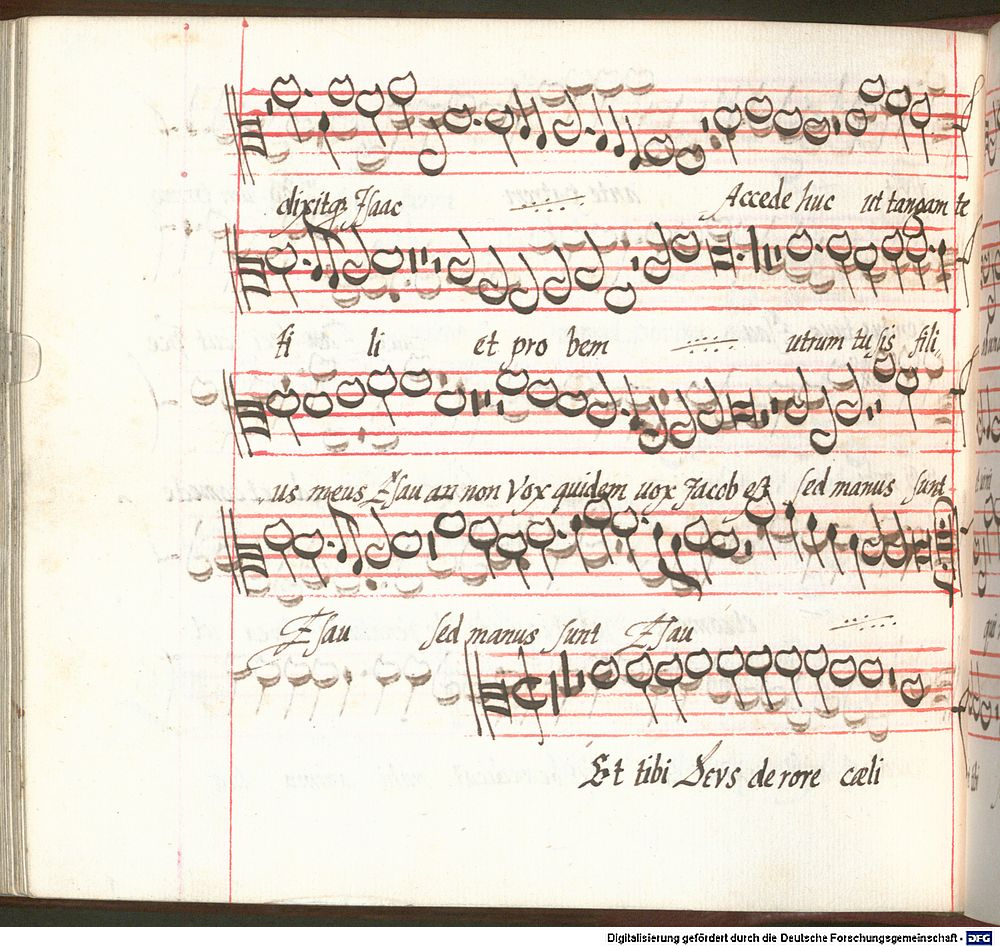 dixitq₃ Isaac Accede huc ut tangam te
fi li et pro bem utrum tu sis fili
us meus Esau an non Vox quidem uox Jacob est sed manus sunt
Esau sed manus sunt Esau
Et tibi Deus de rore cæli
Digitalisierung gefördert durch die Deutsche Forschungsgemeinschaft - DFG